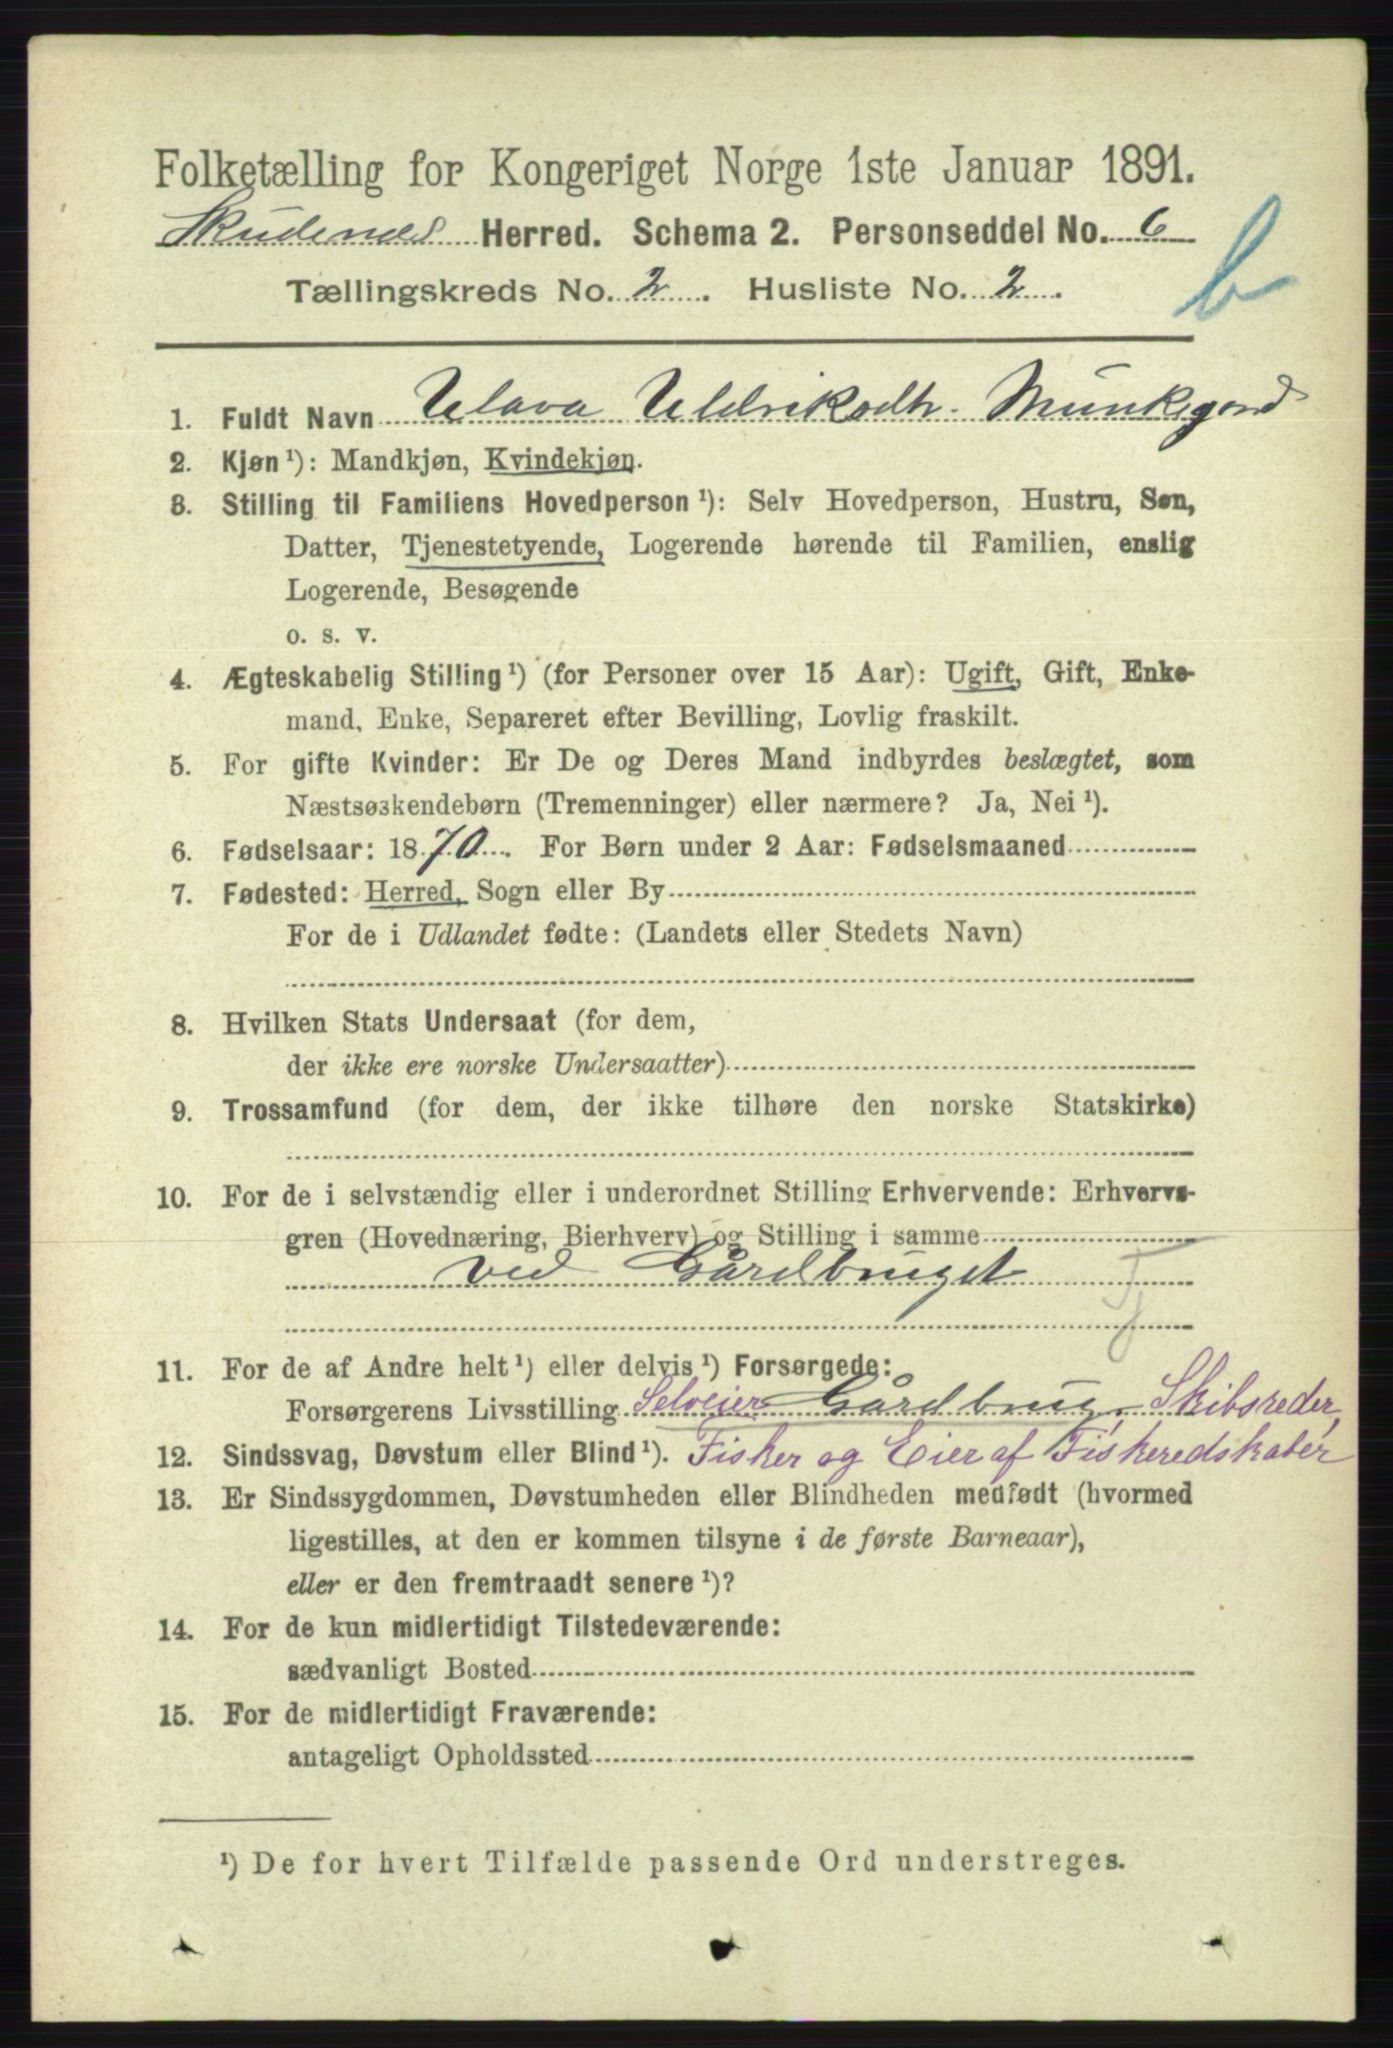 Folketælling for Kongeriget Norge 1ste Januar 1891.
Skudenes Herred. Schema 2. Personseddel No. 6
b
Tællingskreds No. 2. Husliste No. 2.
1. Fuldt Navn Klara Uldriksdtr. Munkegord
2. Kjøn ¹): Mandkjøn, Kvindekjøn.
3. Stilling til Familiens Hovedperson ¹): Selv Hovedperson, Hustru, Søn,
Datter, Tjenestetyende, Logerende hørende til Familien, enslig
Logerende, Besøgende
o. s. v.
4. Ægteskabelig Stilling ¹) (for Personer over 15 Aar): Ugift, Gift, Enke-
mand, Enke, Separeret efter Bevilling, Lovlig fraskilt.
5. For gifte Kvinder: Er De og Deres Mand indbyrdes beslægtet, som
Næstsøskendebørn (Tremenninger) eller nærmere? Ja, Nei ¹).
6. Fødselsaar: 1870. For Børn under 2 Aar: Fødselsmaaned
7. Fødested: Herred, Sogn eller By
For de i Udlandet fødte: (Landets eller Stedets Navn)
8. Hvilken Stats Undersaat (for dem,
der ikke ere norske Undersaatter)
9. Trossamfund (for dem, der ikke tilhøre den norske Statskirke)
10. For de i selvstændig eller i underordnet Stilling Erhvervende: Erhvervs-
gren (Hovednæring, Bierhverv) og Stilling i samme
ved Gårdbruget
Tj
11. For de af Andre helt ¹) eller delvis ¹) Forsørgede:
Forsørgerens Livsstilling Selveier Gårdbrug, Skibsreder,
12. Sindssvag, Døvstum eller Blind ¹). Fisker og Eier af Fiskeredskaber
13. Er Sindssygdommen, Døvstumheden eller Blindheden medfødt (hvormed
ligestilles, at den er kommen tilsyne i de første Barneaar),
eller er den fremtraadt senere ¹)?
14. For de kun midlertidigt Tilstedeværende:
sædvanligt Bosted
15. For de midlertidigt Fraværende:
antageligt Opholdssted
¹) De for hvert Tilfælde passende Ord understreges.